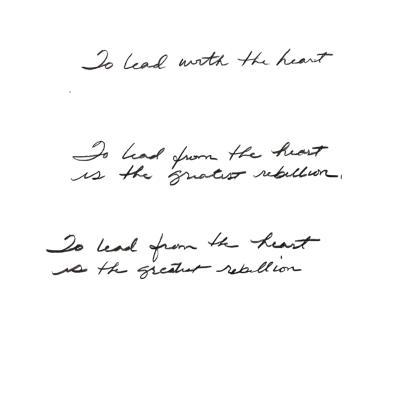 To lead with the heart
To lead from the heart
is the greatest rebellion.
To lead from the heart
is the greatest rebellion